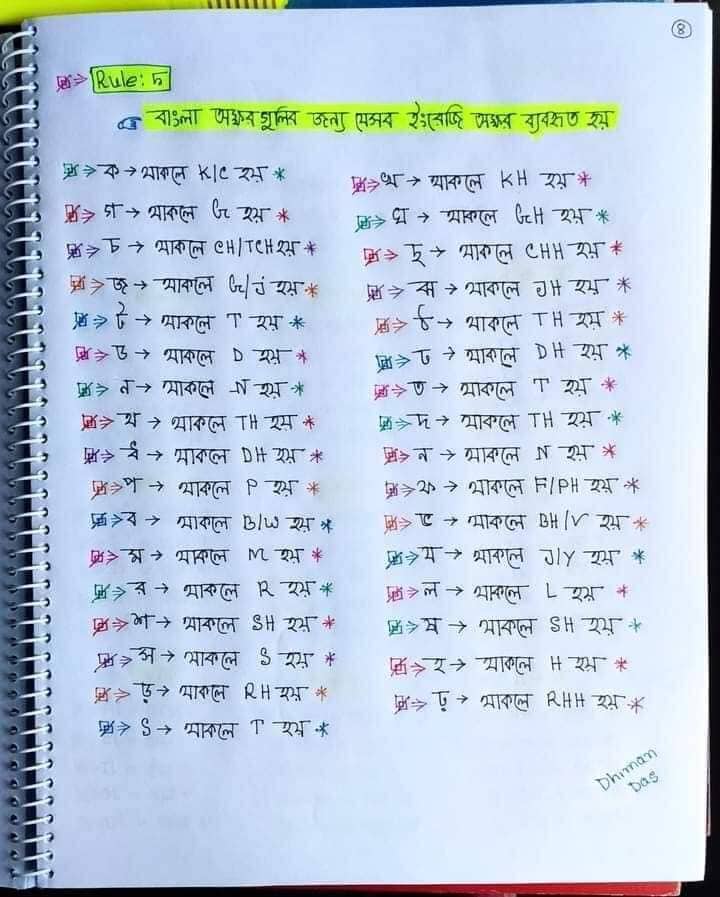 8
Rule: 5
বাংলা অক্ষর গুলির জন্য যেসব ইংরেজি অক্ষর ব্যবহৃত হয়
ক → থাকলে K/C হয় *
খ → থাকলে KH হয় *
গ → থাকলে G হয় *
ঘ → থাকলে GH হয় *
চ → থাকলে CH/TCH হয় *
ছ → থাকলে CHH হয় *
জ → থাকলে G/J হয় *
ঝ → থাকলে JH হয় *
ট → থাকলে T হয় *
ঠ → থাকলে TH হয় *
ড → থাকলে D হয় *
ঢ → থাকলে DH হয় *
ন → থাকলে N হয় *
ত → থাকলে T হয় *
থ → থাকলে TH হয় *
দ → থাকলে TH হয় *
ধ → থাকলে DH হয় *
ন → থাকলে N হয় *
প → থাকলে P হয় *
ফ → থাকলে F/PH হয় *
ব → থাকলে B/W হয় *
ভ → থাকলে BH/V হয় *
ম → থাকলে M হয় *
য → থাকলে J/Y হয় *
র → থাকলে R হয় *
ল → থাকলে L হয় *
শ → থাকলে SH হয় *
ষ → থাকলে SH হয় *
স → থাকলে S হয় *
হ → থাকলে H হয় *
ড় → থাকলে RH হয় *
ঢ় → থাকলে RHH হয় *
ৎ → থাকলে T হয় *
Dhiman
Das